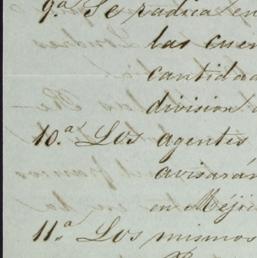 9.ª Se radica en
las cuen
cantidad
division
10.ª Los agentes
avisarán
en Méji
11.ª Los mismos